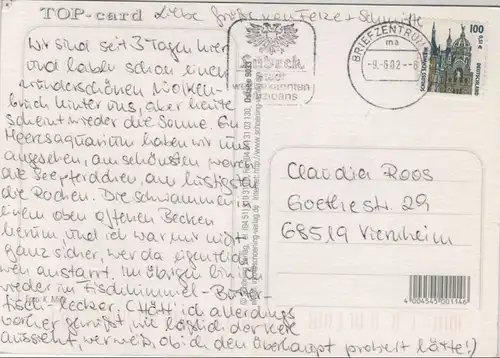 TOP-card
Liebe Grüße von Felze + Schmitte
Wir sind seit 3 Tagen hier
und haben schon einen
wunderschönen Wolken-
bruch hinter uns, aber heute
scheint wieder die Sonne. Ein
Meeresaquarium haben wir uns
angesehen, am schönsten waren
die Seepferdchen, am lustigsten
die Rochen. Die schwammen in
einem oben offenen Becken
herum, und ich war mir nicht
ganz sicher, wer da eigentlich
wen anstarrt. Im übrigen bin ich
wieder im Fischhimmel - Butter-
fisch - lecker. (Hätt' ich allerdings
vorher gewußt, wie der Kerl
aussieht, wer weiß, ob ich den überhaupt probiert hätte!)
Lübeck
BRIEFZENTRUM
ma
-9.-6.02--6
100
0,51 €
DEUTSCHLAND
Claudia Roos
Goethestr. 29
68519 Viernheim
4 004545 001146